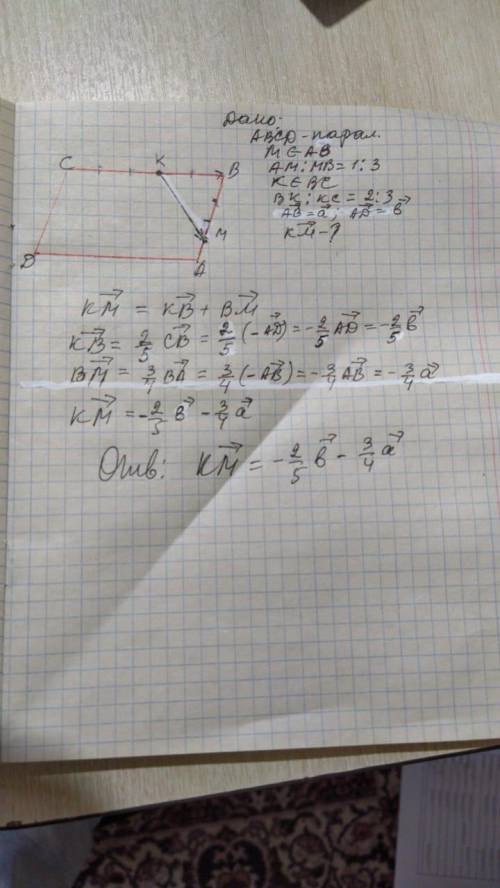 Дано:
ABCD - парал.
M ∈ AB
AM : MB = 1 : 3
K ∈ BC
BK : KC = 2 : 3
AB⃗ = a⃗ ; AD⃗ = b⃗
KM⃗ - ?
C K B
M
D A
KM⃗ = KB⃗ + BM⃗
KB⃗ = 2/5 CB⃗ = 2/5 (-AD⃗) = -2/5 AD⃗ = -2/5 b⃗
BM⃗ = 3/4 BA⃗ = 3/4 (-AB⃗) = -3/4 AB⃗ = -3/4 a⃗
KM⃗ = -2/5 b⃗ - 3/4 a⃗
Отв: KM⃗ = -2/5 b⃗ - 3/4 a⃗